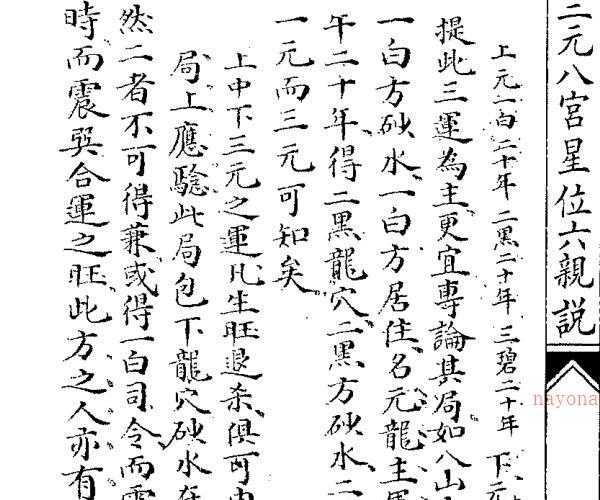 二元八宮星位六親説
上元一白二十年二黑二十年三碧二十年下元
提此三運為主更宜專論其局如八山
一白方砂水一白方居住名元龍主運
午二十年得二黑龍穴二黑方砂水二
一元而三元可知矣
上中下三元之運凡生旺退杀俱可由
局上應驗此局包下龍穴砂水在
然二者不可得兼或得一白司令而震
時而震巽合運之旺此方之人亦有
nayona